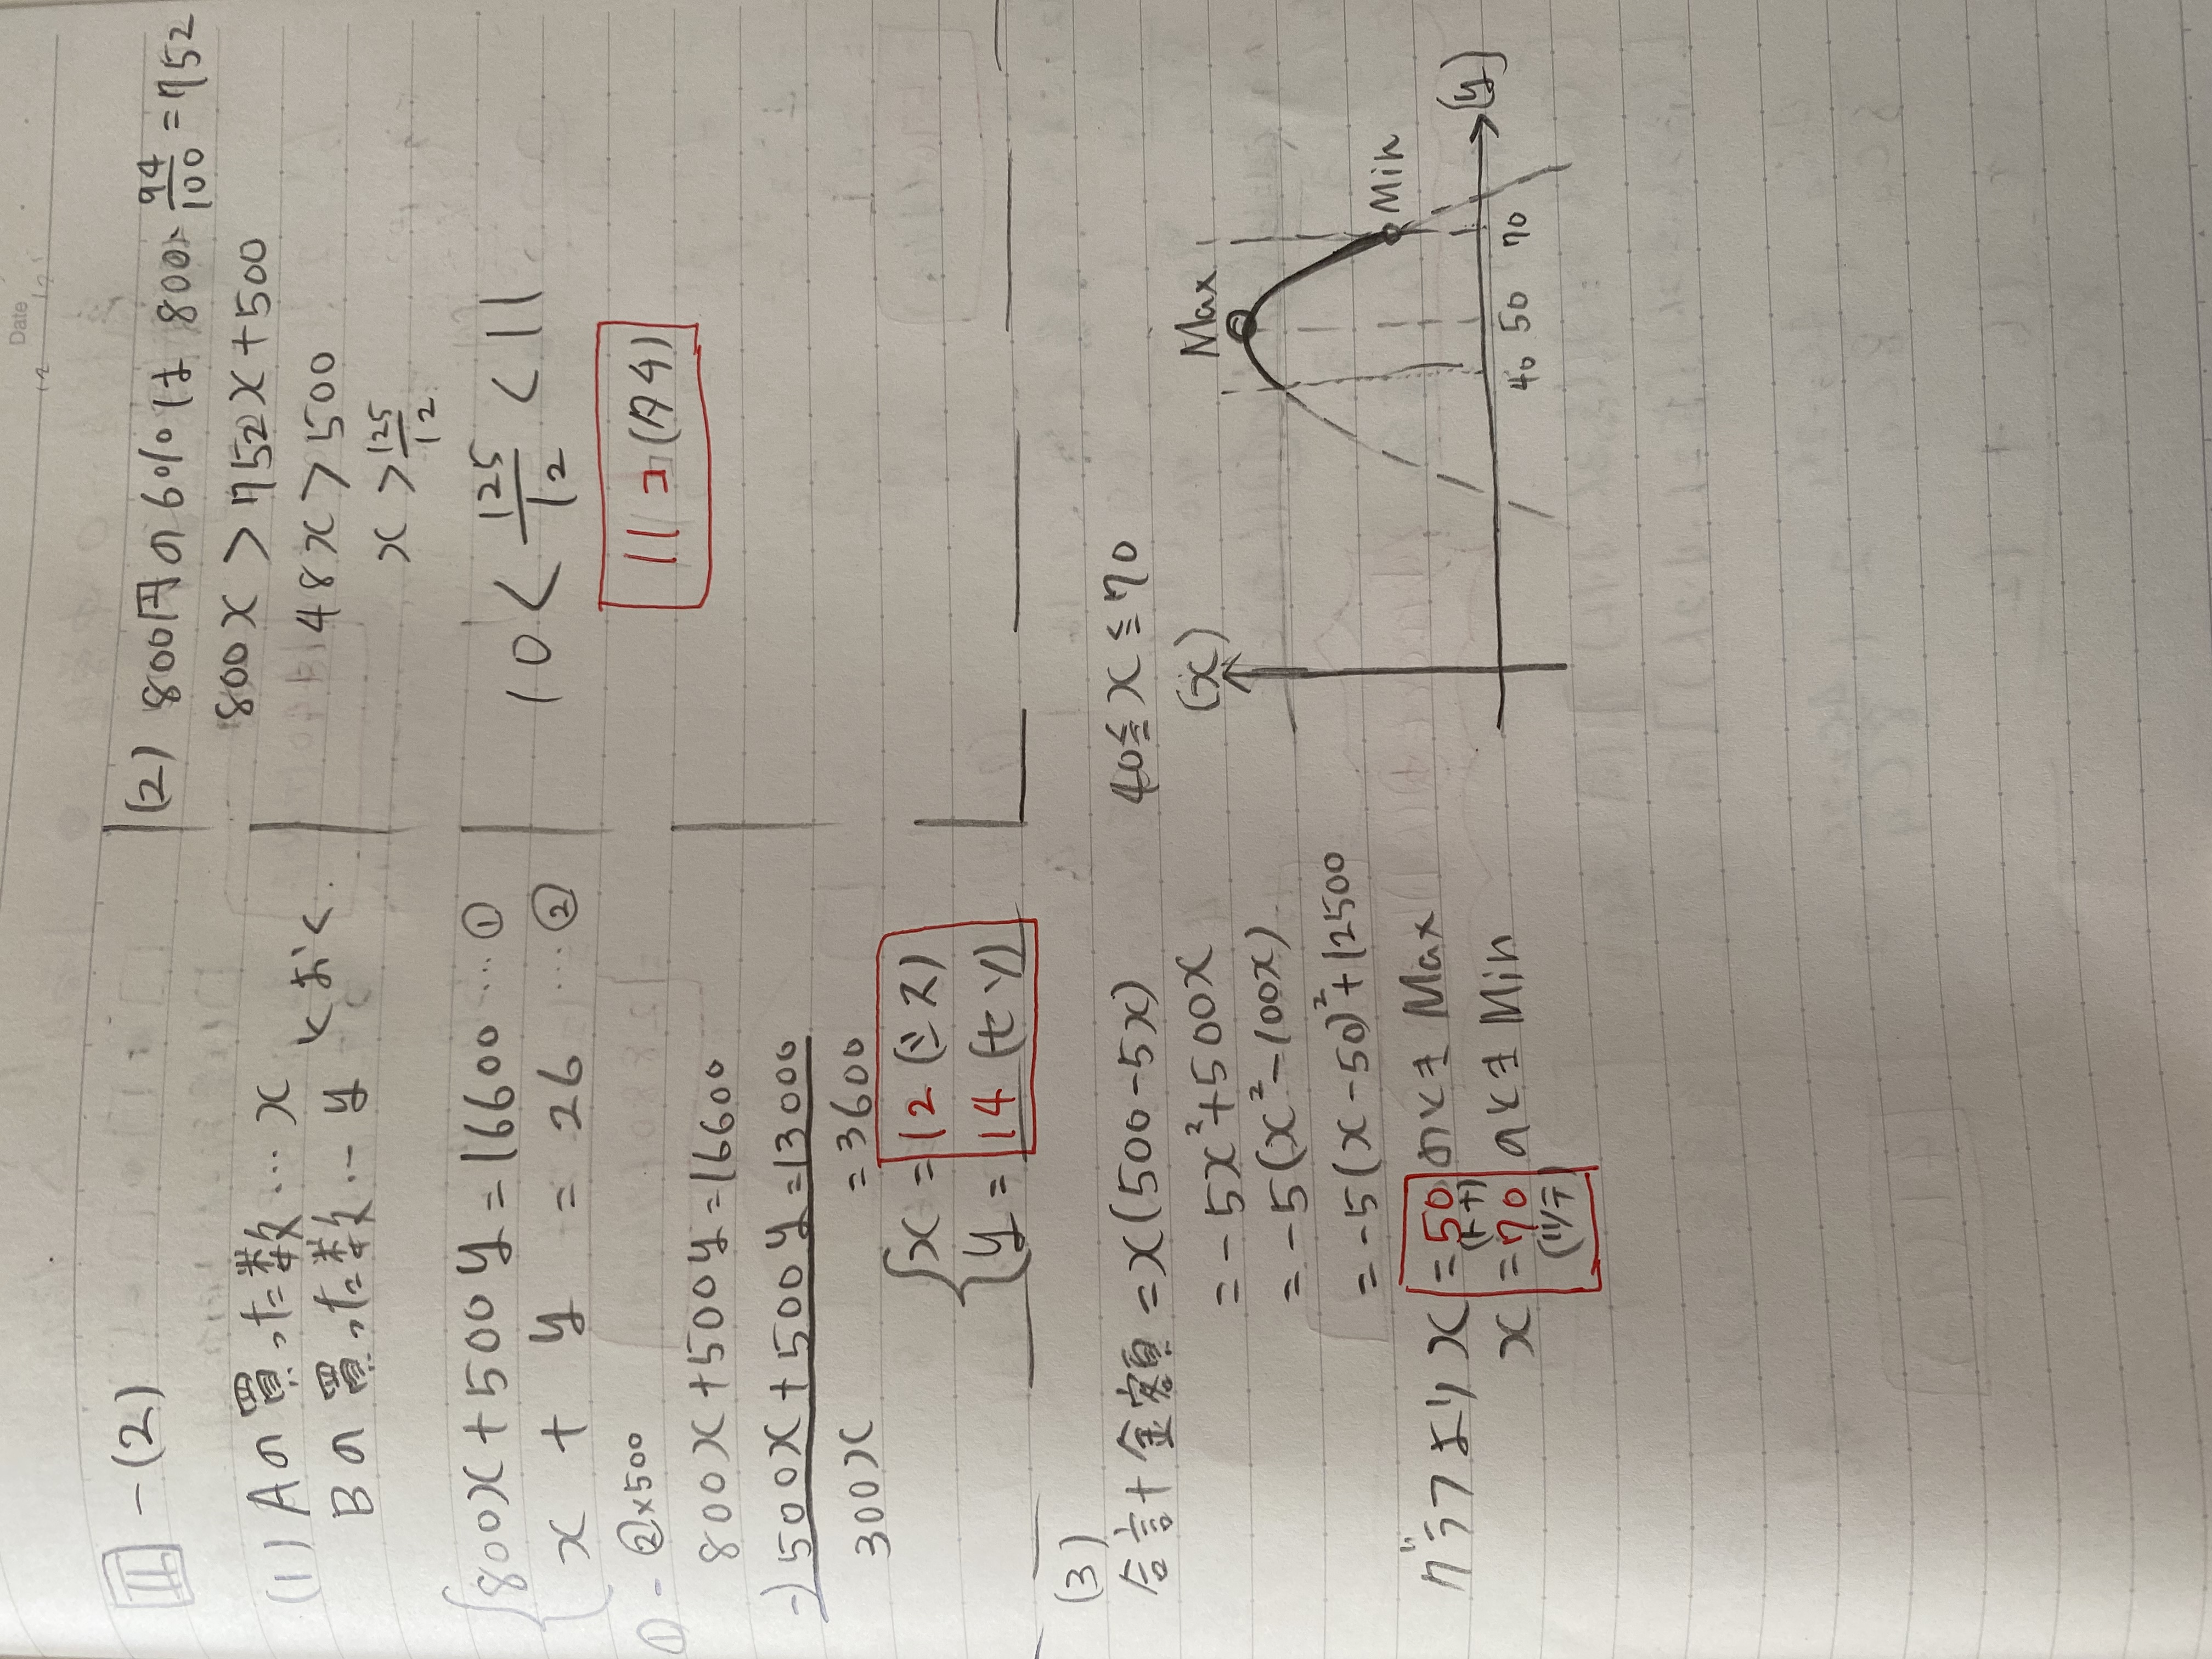 Date
II -(2)
(1) Aの買った数…x
Bの買った数…y とおく
{800x+500y=16600 …①
x + y = 26 …②
①-②×500
800x+500y=16600
-)500x+500y=13000
300x =3600
{x=12(シス)
y=14(セソ)
(2) 800円の6%は 800×94/100=752
800x>752x+500
48x>500
x>125/12
10<125/12<11
11コ(タチ)
(3)
合計金額=x(500-5x)
=-5x²+500x
=-5(x²-100x)
=-5(x-50)²+12500
グラフより x=50のときMax
x=70のときMin
40≦x≦70
(x)
Max
Min
40 50 70
(y)